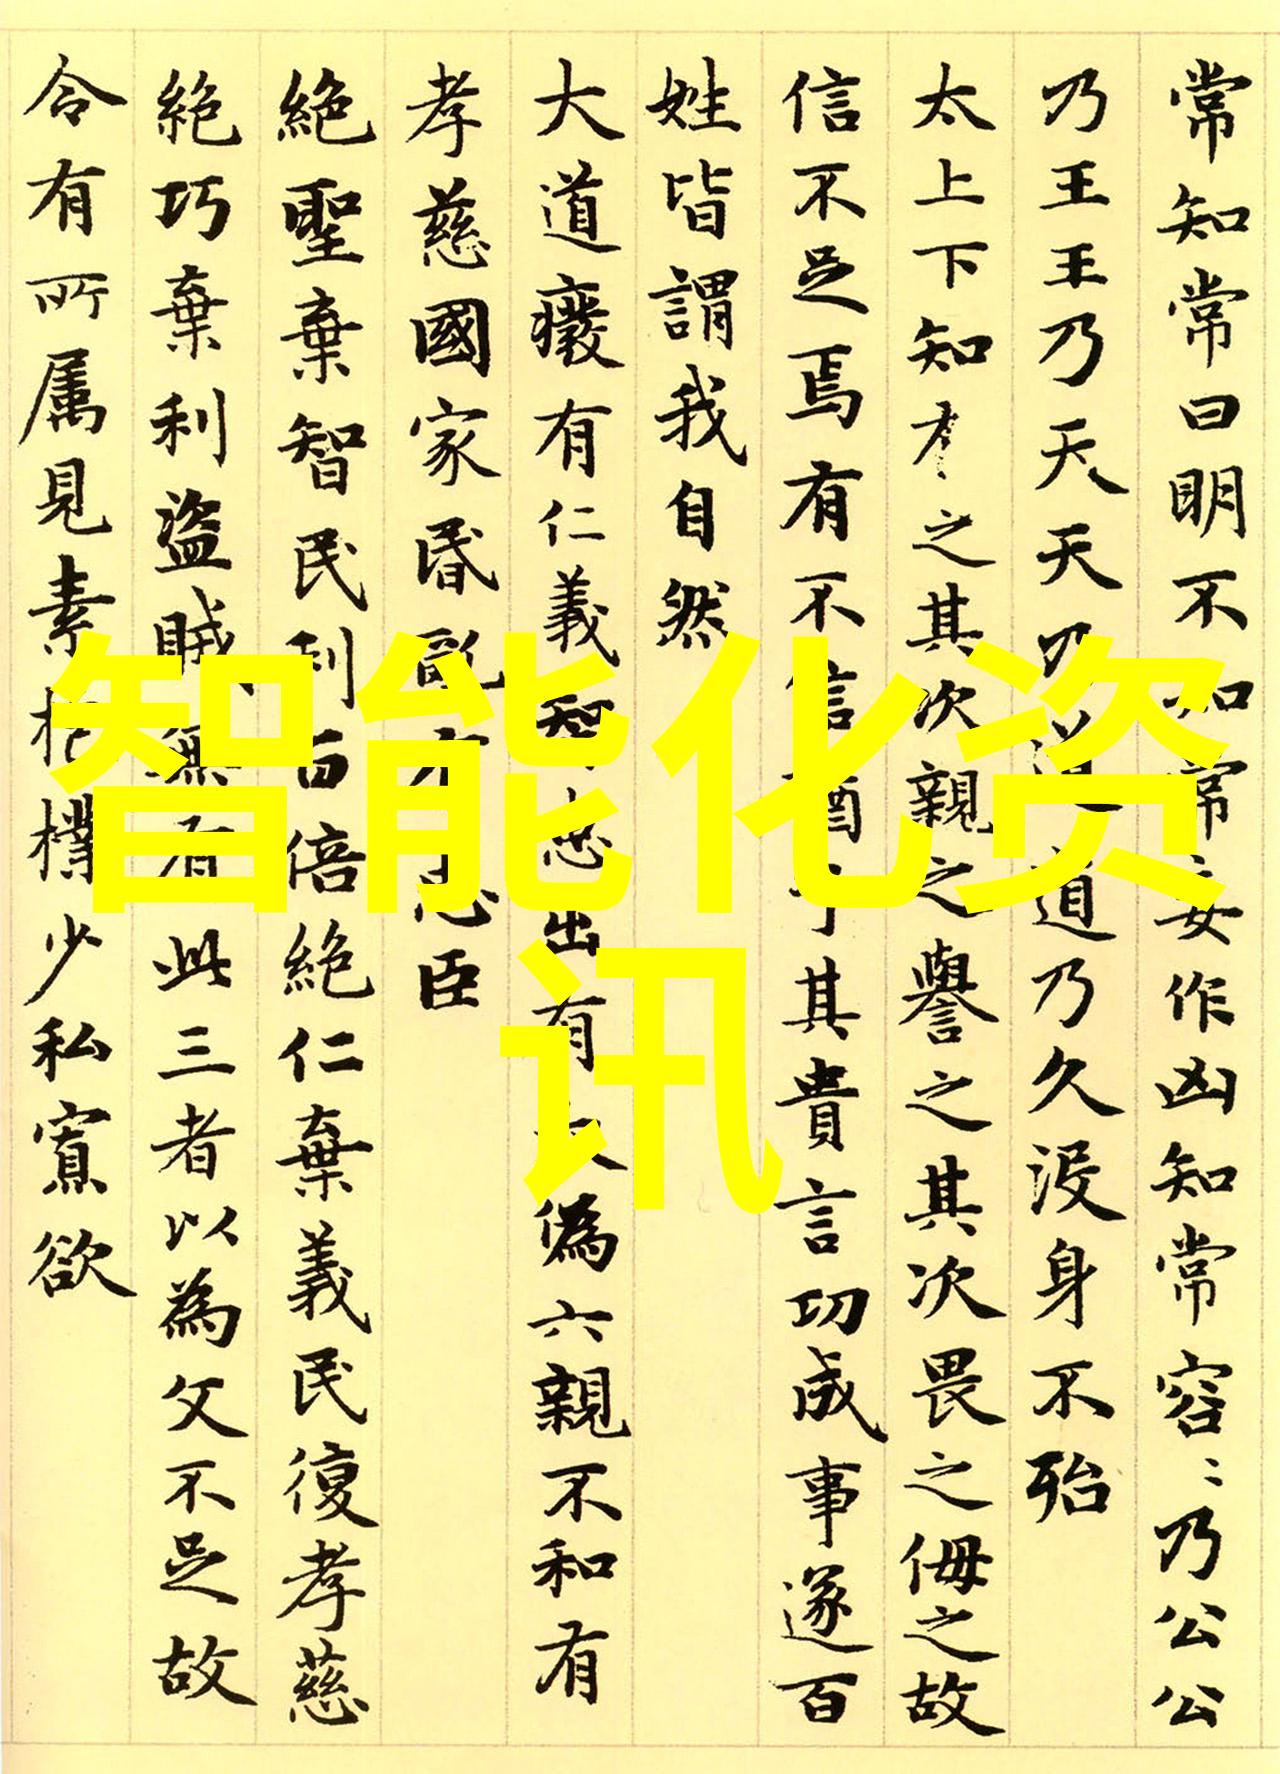 常知常曰明不知常妄作凶知常容〻乃公公
乃王王乃天天乃道道乃久没身不殆
太上下知有之其次親之譽之其次畏之侮之故
信不足焉有不信猶其貴言功成事遂百
姓皆謂我自然
大道癈有仁義智出有偽六親不和有
孝慈國家昏亂有忠臣
絶聖棄智民利百倍絶仁棄義民復孝慈
絶巧棄利盗賊無有此三者以為文不足故
令有所属見素抱樸少私寡欲
智能化资
讯